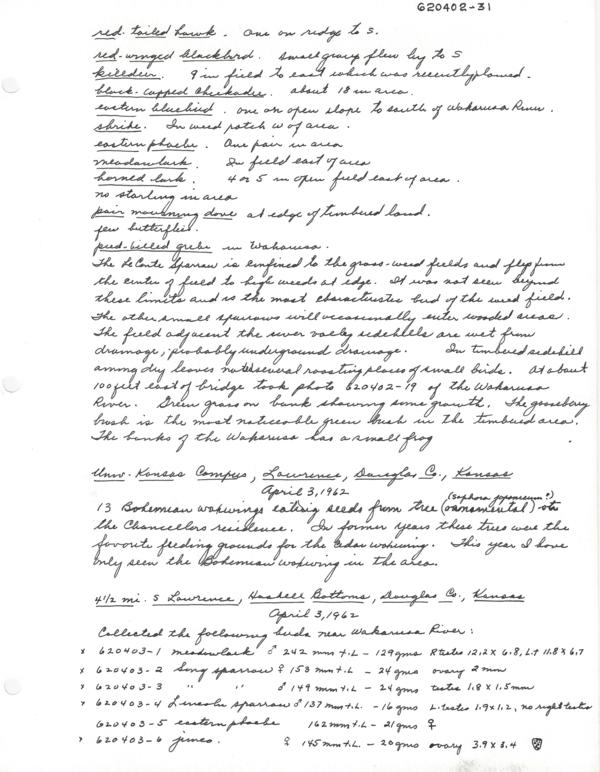 620402-31
red-tailed hawk. One on ridge to S.
red-winged blackbird. small group flew by to S
killdeer. 9 in field to east which was recently plowed.
black-capped chickadee. about 18 in area.
eastern bluebird. one on open slope to south of Wakarusa River.
shrike. In weed patch W of area.
eastern phoebe. One pair in area
meadowlark. In field east of area
horned lark. 4 or 5 in open field east of area.
no starling in area
pair mourning dove at edge of timbered land.
few butterflies.
pied-billed grebe in Wakarusa.
The LeConte Sparrow is confined to the grass-weed fields and flys from
the center of field to high weeds at edge. It was not seen beyond
these limits and is the most characteristic bird of the weed field.
The other small sparrows will occasionally enter wooded areas.
The field adjacent the river valley sidehills are wet from
drainage, probably underground drainage. In timbered sidehill
among dry leaves noted several roosting places of small birds. At about
100 feet east of bridge took photo 620402-19 of the Wakarusa
River. Green grass on bank showing some growth. The gooseberry
bush is the most noticeable green bush in the timbered area.
The banks of the Wakarusa has a small frog
Univ. Kansas Campus, Lawrence, Douglas Co., Kansas
April 3, 1962
(Sophora japonicum?)
13 Bohemian waxwings eating seeds from tree (ornamental) at
the Chancellors residence. In former years these trees were the
favorite feeding grounds for the cedar waxwing. This year I have
only seen the Bohemian waxwing in the area.
4 1/2 mi. S Lawrence, Haskell Bottoms, Douglas Co., Kansas
April 3, 1962
Collected the following birds near Wakarusa River:
x 620403-1 meadowlark ♂ 242 mm t.L - 129 gms R testes 12.2 x 6.8, L.t 11.8 x 6.7
x 620403-2 Song sparrow ♀ 153 mm t.L - 24 gms ovary 2 mm
x 620403-3 " " ♂ 149 mm t.L - 24 gms testes 1.8 x 1.5 mm
x 620403-4 Lincoln sparrow ♂ 137 mm t.L - 16 gms L. testes 1.9 x 1.2, no right testes
620403-5 eastern phoebe 162 mm t.L - 21 gms ♀
x 620403-6 junco. ♀ 145 mm t.L. - 20 gms ovary 3.9 x 3.4